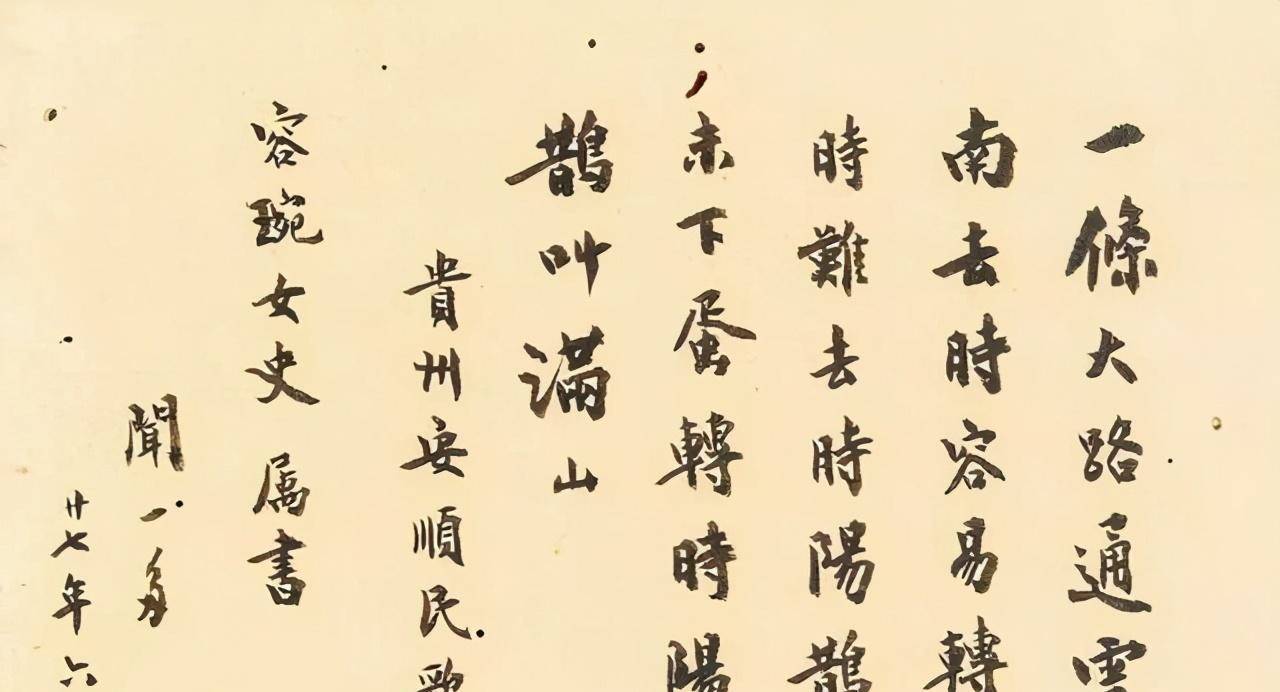 一條大路通雲
南去時容易轉
時難去時陽鵲
未下蛋轉時陽
鵲叫滿山
貴州安順民歌
容琬女史 属書
聞一多
廿七年六